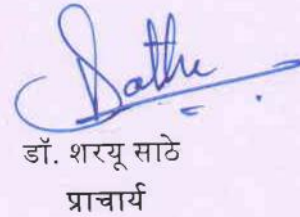 Sathe
डॉ. शरयू साठे
प्राचार्य